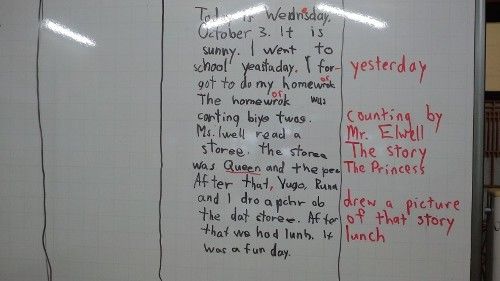 Today is Wednsday,
October 3. It is
sunny. I went to
school yeastaday. I for-
got to do my homewrok
The homewrok was
conting biye twos.
Ms. lwell read a
storee. the storee
was Queen and the pee
After that, Yugo, Runa
and I dro a pchr ob
the dat storee. After
that we had lunh. It
was a fun day.
or
or
yesterday
counting by
Mr. Elwell
The story
The Princess
drew a picture
of that story
lunch